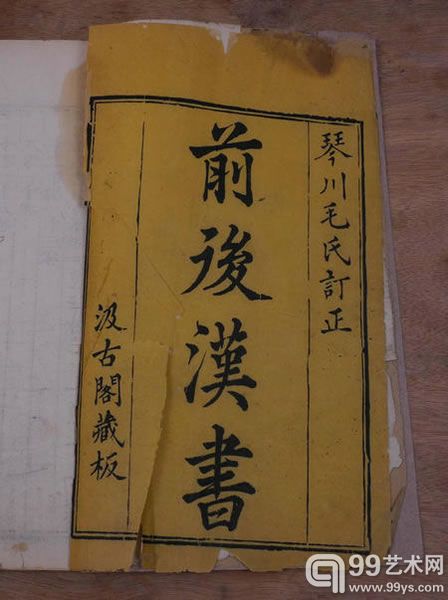 琴川毛氏訂正
前後漢書
汲古閣藏板
99艺术网
www.99ys.com